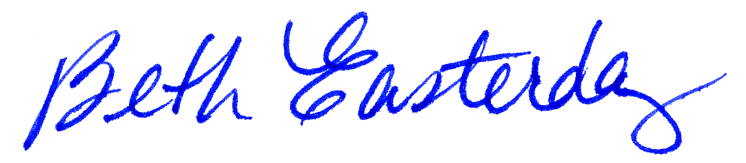 Beth Easterday